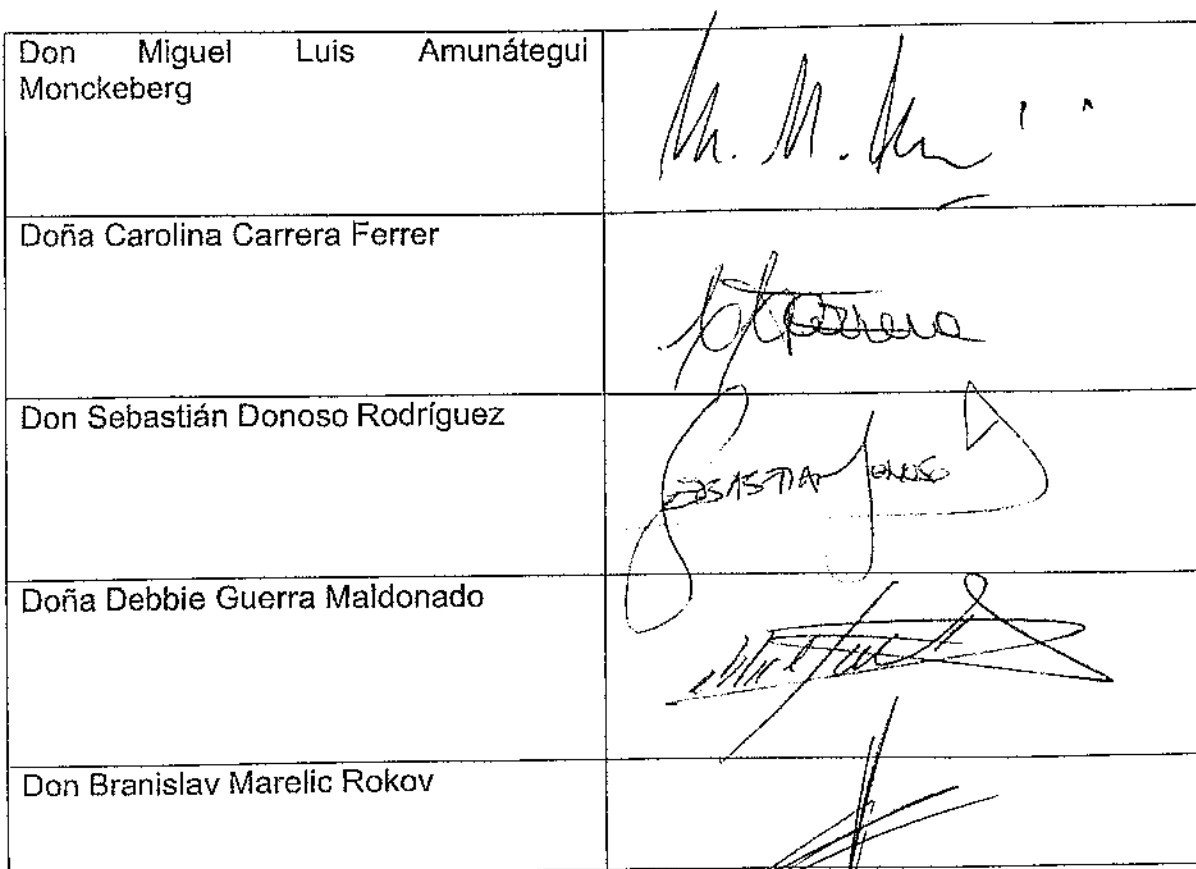 Don Miguel Luis Amunátegui
Monckeberg
Doña Carolina Carrera Ferrer
Don Sebastián Donoso Rodríguez
SEBASTIAN DONOSO
Doña Debbie Guerra Maldonado
Don Branislav Marelic Rokov